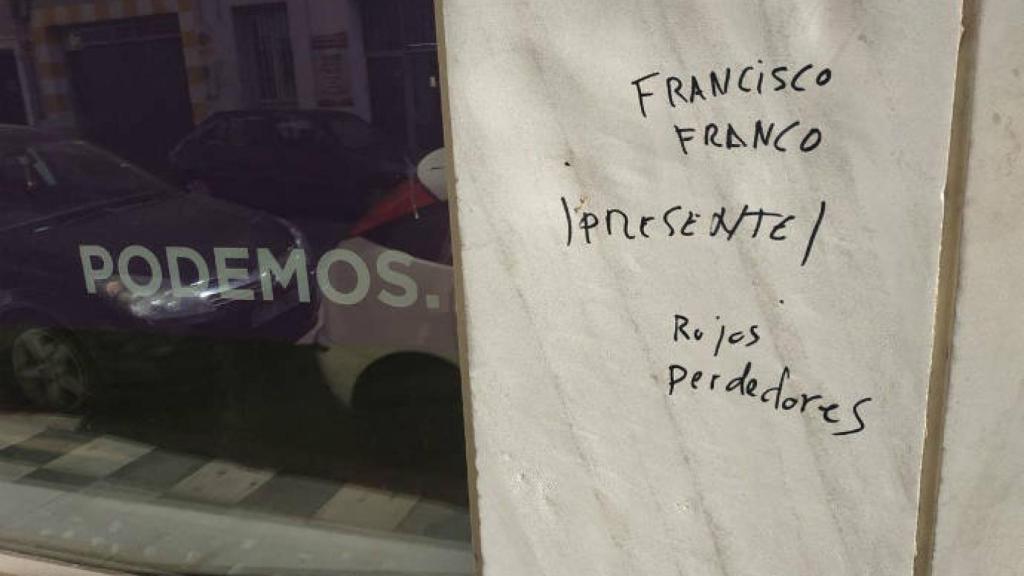 PODEMOS.
FRANCISCO
FRANCO
¡PRESENTE!
Rojos
perdedores